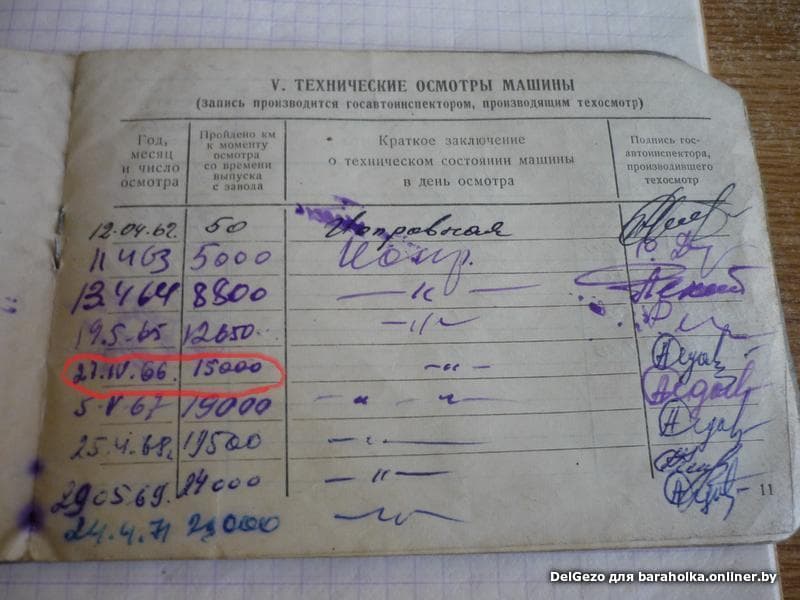 V. ТЕХНИЧЕСКИЕ ОСМОТРЫ МАШИНЫ
(запись производится госавтоинспектором, производящим техосмотр)
Год, месяц и число осмотра
Пройдено км к моменту осмотра со времени выпуска с завода
Краткое заключение о техническом состоянии машины в день осмотра
Подпись гос-автоинспектора, производившего техосмотр
12.04.62. 50 Исправная
11 4 63 5000 Испр.
13.4.64 8800 —〃—
19.5.65 12650 —〃—
27.IV.66. 15000 —〃—
5.V 67 19000 —〃—
25.4.68. 19500 —〃—
29.05.69. 24000 —〃—
24.4.71 —〃—
11
DelGezo для baraholka.onliner.by